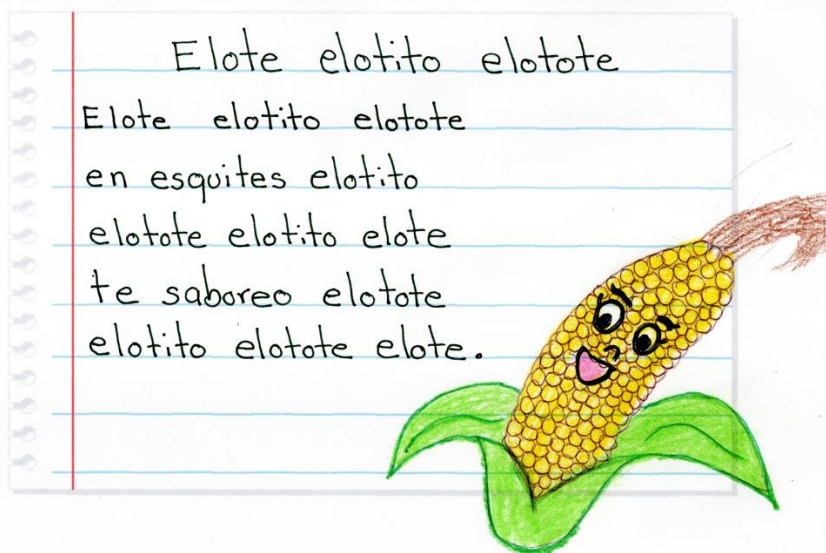 Elote elotito elotote
Elote elotito elotote
en esquites elotito
elotote elotito elote
te saboreo elotote
elotito elotote elote.